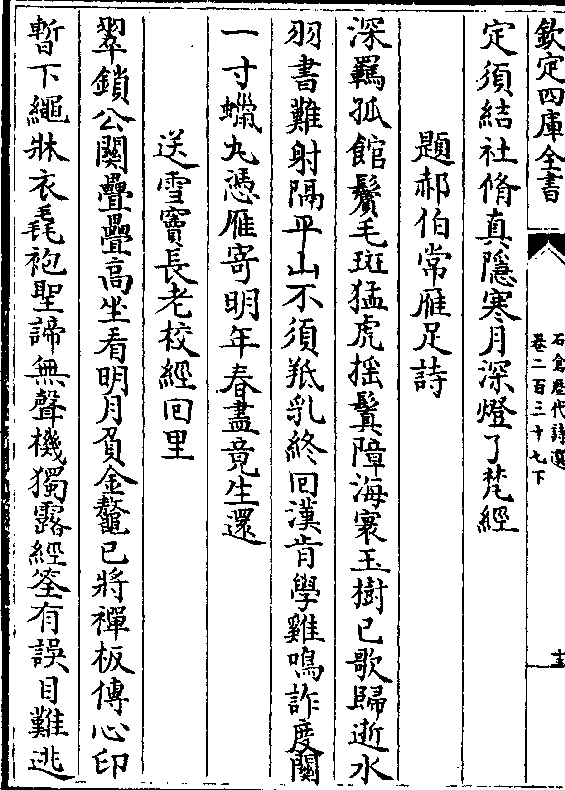 欽定四庫全書
石倉歴代詩選
卷二百三十七下
十三
定須結社脩真隱寒月深燈了梵經
題郝伯常雁足詩
深羈孤館鬢毛斑猛虎揺鬚障海寰玉樹已歌歸逝水
羽書難射隔平山不須羝乳終回漢肯學雞鳴詐度關
一寸蠟丸憑雁寄明年春盡竟生還
送雪竇長老校經回里
翠鎖公闗疊疊髙坐看明月負金鼇已將禪板傳心印
暫下繩牀衣毳袍聖諦無聲機獨露經筌有誤目難逃